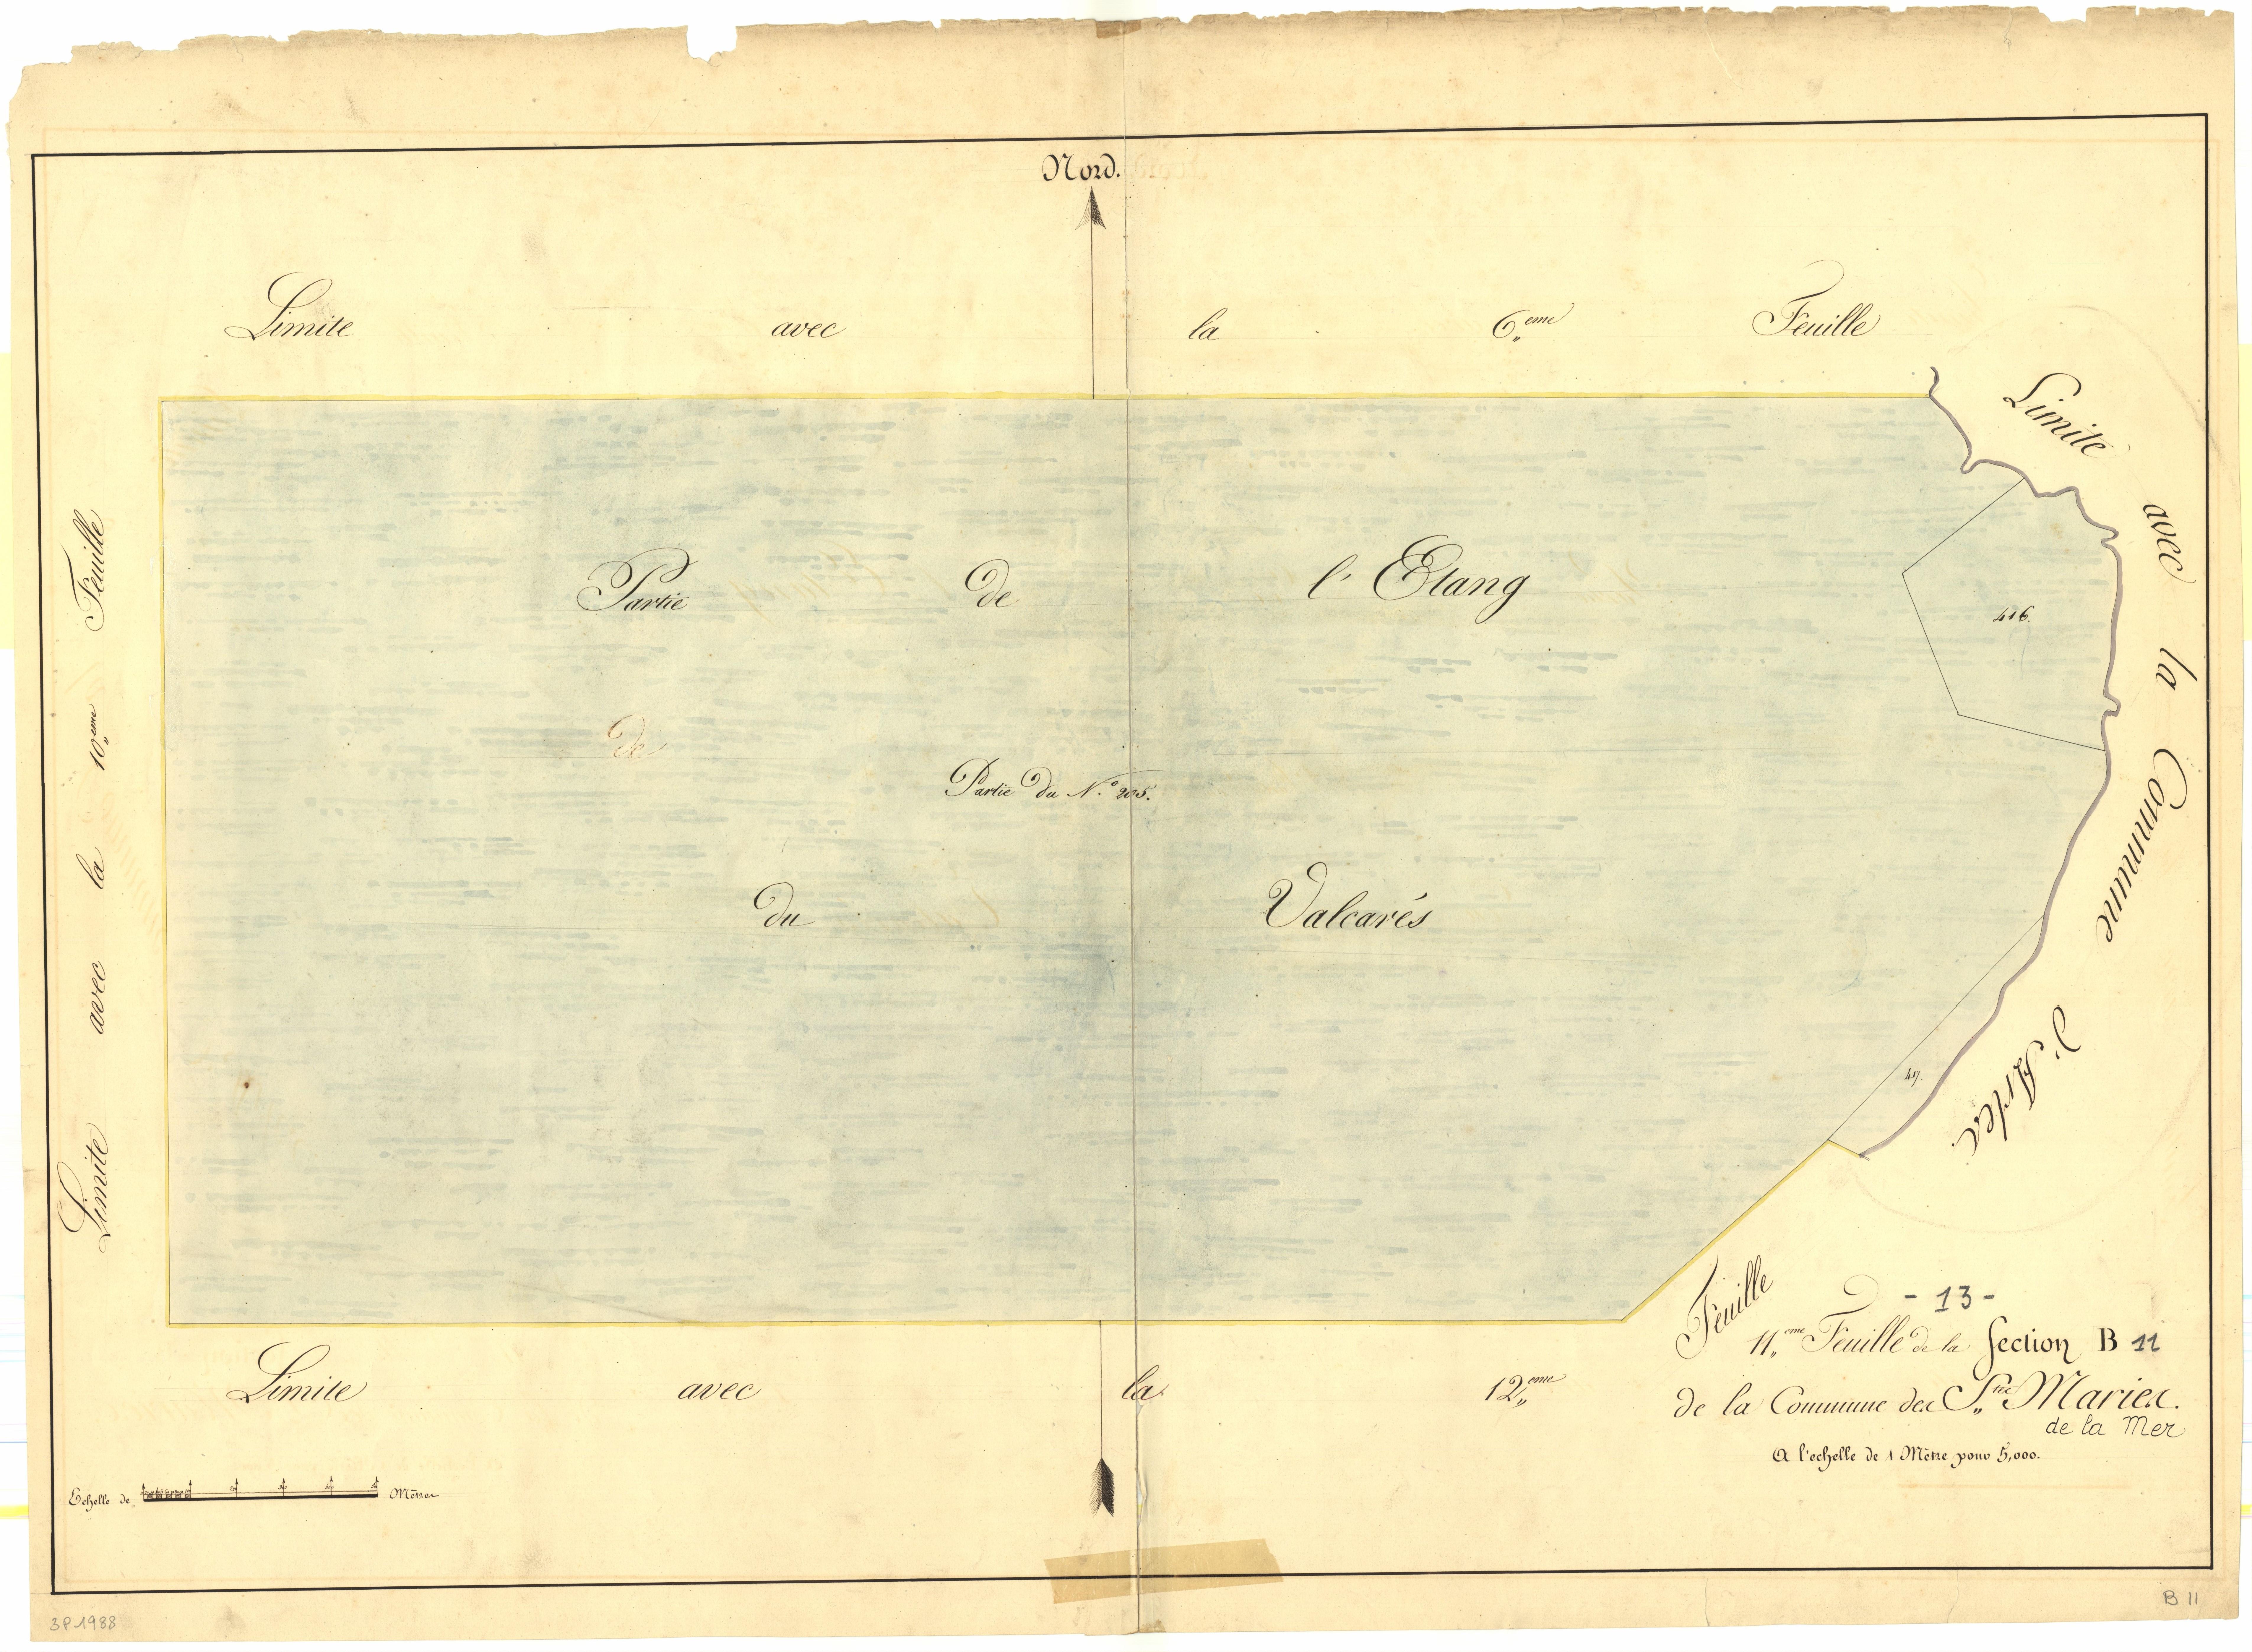 Nord.
Limite avec la 6,,eme Feuille
Limite avec la Commune d'Arles.
Limite avec la 10,,eme Feuille
Partie de l'Etang
416.
de
Partie du N.º 205.
du Valcarés
417.
Limite avec la 12,,eme Feuille
- 13 -
11,,eme Feuille de la Section B 11
de la Commune des S,,tes Maries.
de la Mer
A l'echelle de 1 Mètre pour 5,000.
Echelle de Mètres
3P 1988
B 11